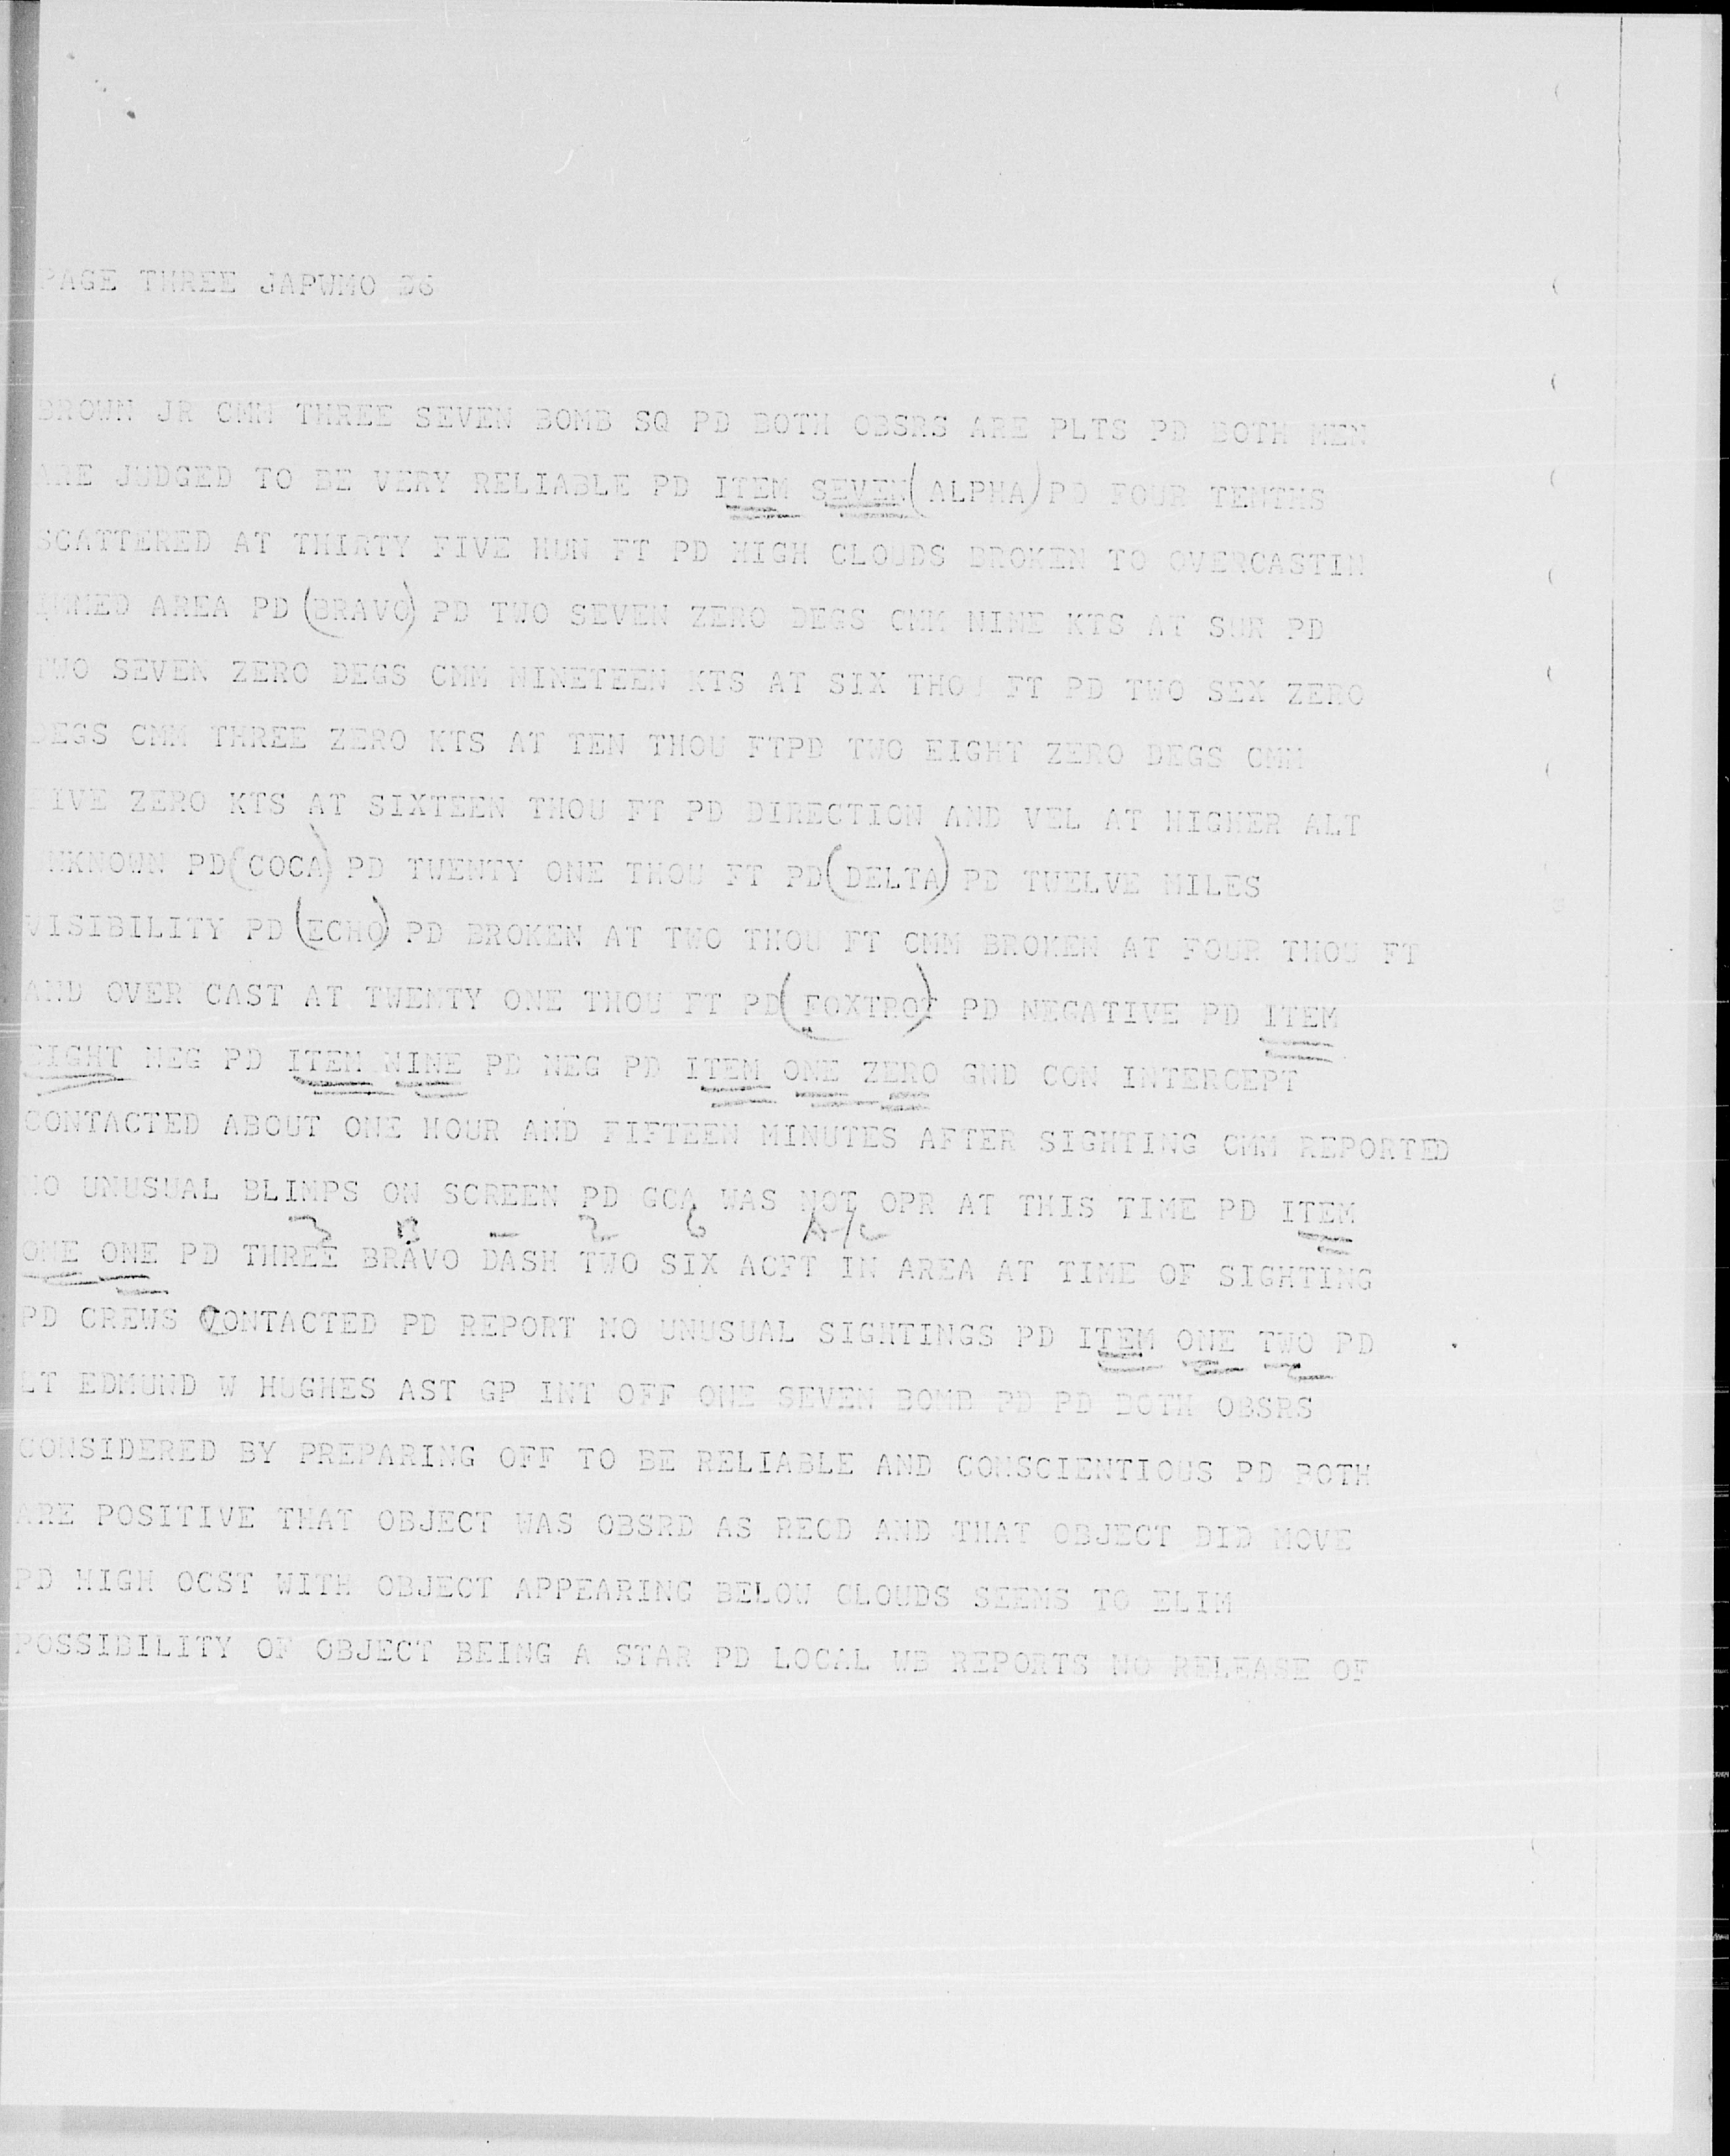 PAGE THREE JAPWMO 36
BROWN JR CMM THREE SEVEN BOMB SQ PD BOTH OBSRS ARE PLTS PD BOTH MEN
ARE JUDGED TO BE VERY RELIABLE PD ITEM SEVEN(ALPHA)PD FOUR TENTHS
SCATTERED AT THIRTY FIVE HUN FT PD HIGH CLOUDS BROKEN TO OVERCASTIN
IMMED AREA PD (BRAVO) PD TWO SEVEN ZERO DEGS CMM NINE KTS AT SUR PD
TWO SEVEN ZERO DEGS CMM NINETEEN KTS AT SIX THOU FT PD TWO SEX ZERO
DEGS CMM THREE ZERO KTS AT TEN THOU FTPD TWO EIGHT ZERO DEGS CMM
FIVE ZERO KTS AT SIXTEEN THOU FT PD DIRECTION AND VEL AT HIGHER ALT
UNKNOWN PD(COCA) PD TWENTY ONE THOU FT PD(DELTA) PD TWELVE MILES
VISIBILITY PD (ECHO) PD BROKEN AT TWO THOU FT CMM BROKEN AT FOUR THOU FT
AND OVER CAST AT TWENTY ONE THOU FT PD(FOXTROT) PD NEGATIVE PD ITEM
EIGHT NEG PD ITEM NINE PD NEG PD ITEM ONE ZERO GND CON INTERCEPT
CONTACTED ABOUT ONE HOUR AND FIFTEEN MINUTES AFTER SIGHTING CMM REPORTED
NO UNUSUAL BLIMPS ON SCREEN PD GCA WAS NOT OPR AT THIS TIME PD ITEM
3 B - 2 6 A/C
ONE ONE PD THREE BRAVO DASH TWO SIX ACFT IN AREA AT TIME OF SIGHTING
PD CREWS CONTACTED PD REPORT NO UNUSUAL SIGHTINGS PD ITEM ONE TWO PD
LT EDMUND W HUGHES AST GP INT OFF ONE SEVEN BOMB PD PD BOTH OBSRS
CONSIDERED BY PREPARING OFF TO BE RELIABLE AND CONSCIENTIOUS PD BOTH
ARE POSITIVE THAT OBJECT WAS OBSRD AS RECD AND THAT OBJECT DID MOVE
PD HIGH OCST WITH OBJECT APPEARING BELOW CLOUDS SEEMS TO ELIM
POSSIBILITY OF OBJECT BEING A STAR PD LOCAL WB REPORTS NO RELEASE OF